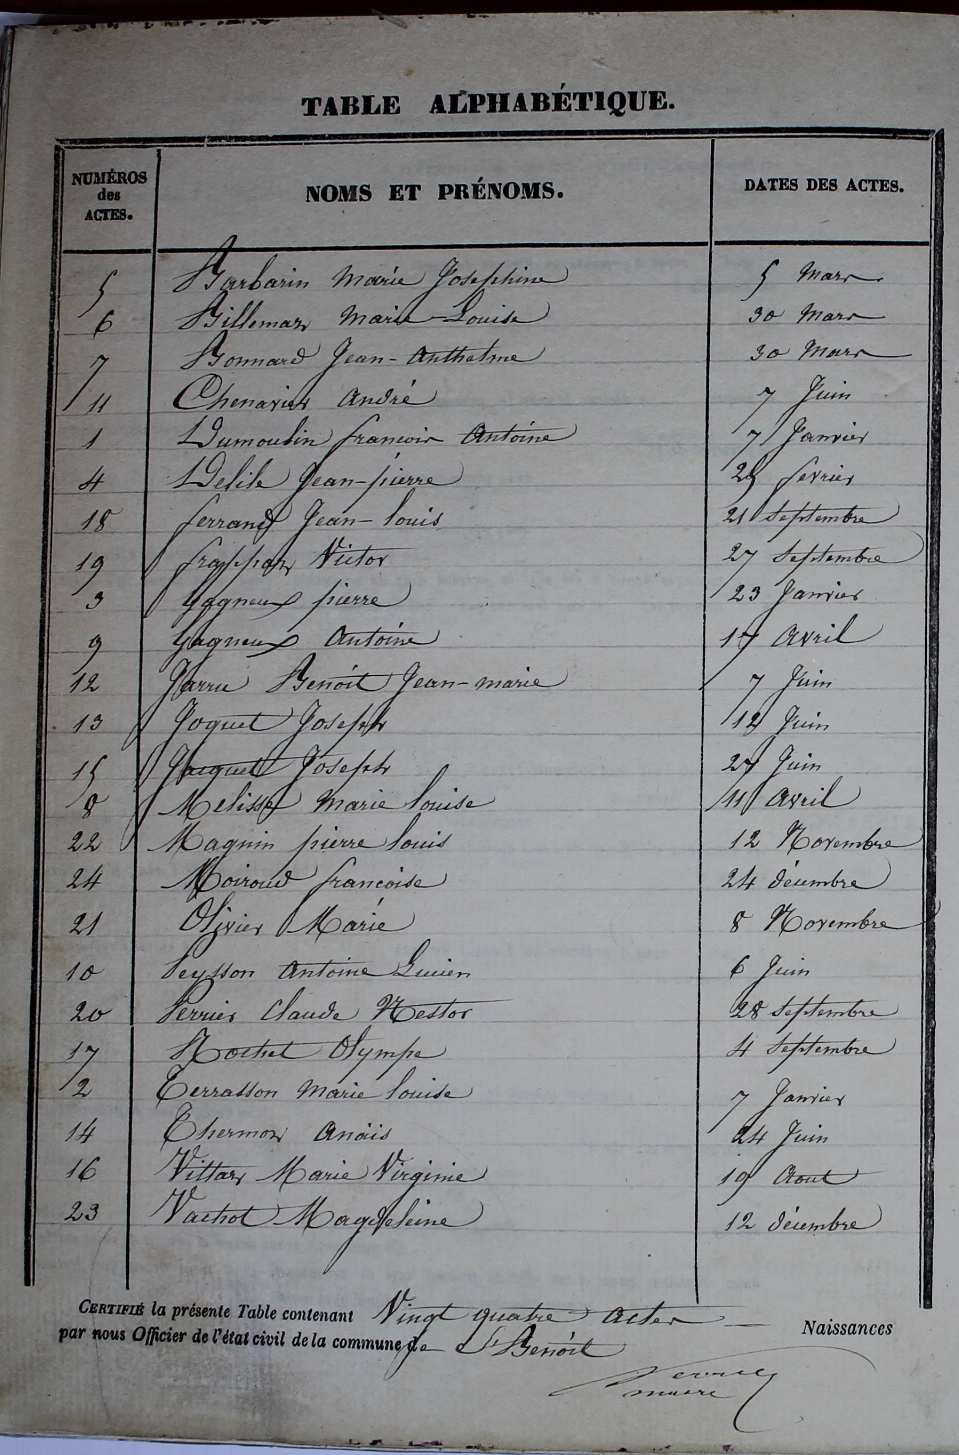 TABLE ALPHABÉTIQUE.
NUMÉROS des ACTES. NOMS ET PRÉNOMS. DATES DES ACTES.
5 Barbarin Marie Josephine 5 Mars
6 Billemaz Marie-Louise 30 Mars
7 Bonnard Jean-Anthelme 30 Mars
11 Chenavier André 7 Juin
1 Dumoulin françois Antoine 7 Janvier
4 Delile Jean-pierre 25 fevrier
18 ferrand Jean-louis 21 Septembre
19 frappaz Victor 27 Septembre
3 gagneux pierre 23 Janvier
9 gagneux Antoine 17 Avril
12 Jarru Benoit Jean-marie 7 Juin
13 Joquet Joseph 12 Juin
15 Jacquet Joseph 27 Juin
8 Melisse Marie louise 11 Avril
22 Magnin pierre louis 12 Novembre
24 Moiroud françoise 24 décembre
21 Olivier Marie 8 Novembre
10 Peysson Antoine Lucien 6 Juin
20 Perrier Claude Nestor 28 Septembre
17 Rochet Olympe 4 Septembre
2 Terrasson Marie louise 7 Janvier
14 Thermoz Anaïs 24 Juin
16 Vittaz Marie Virginie 19 Aout
23 Vachot Magdeleine 12 décembre
CERTIFIÉ la présente Table contenant Vingt quatre actes — Naissances
par nous Officier de l'état civil de la commune de St Benoit
maire